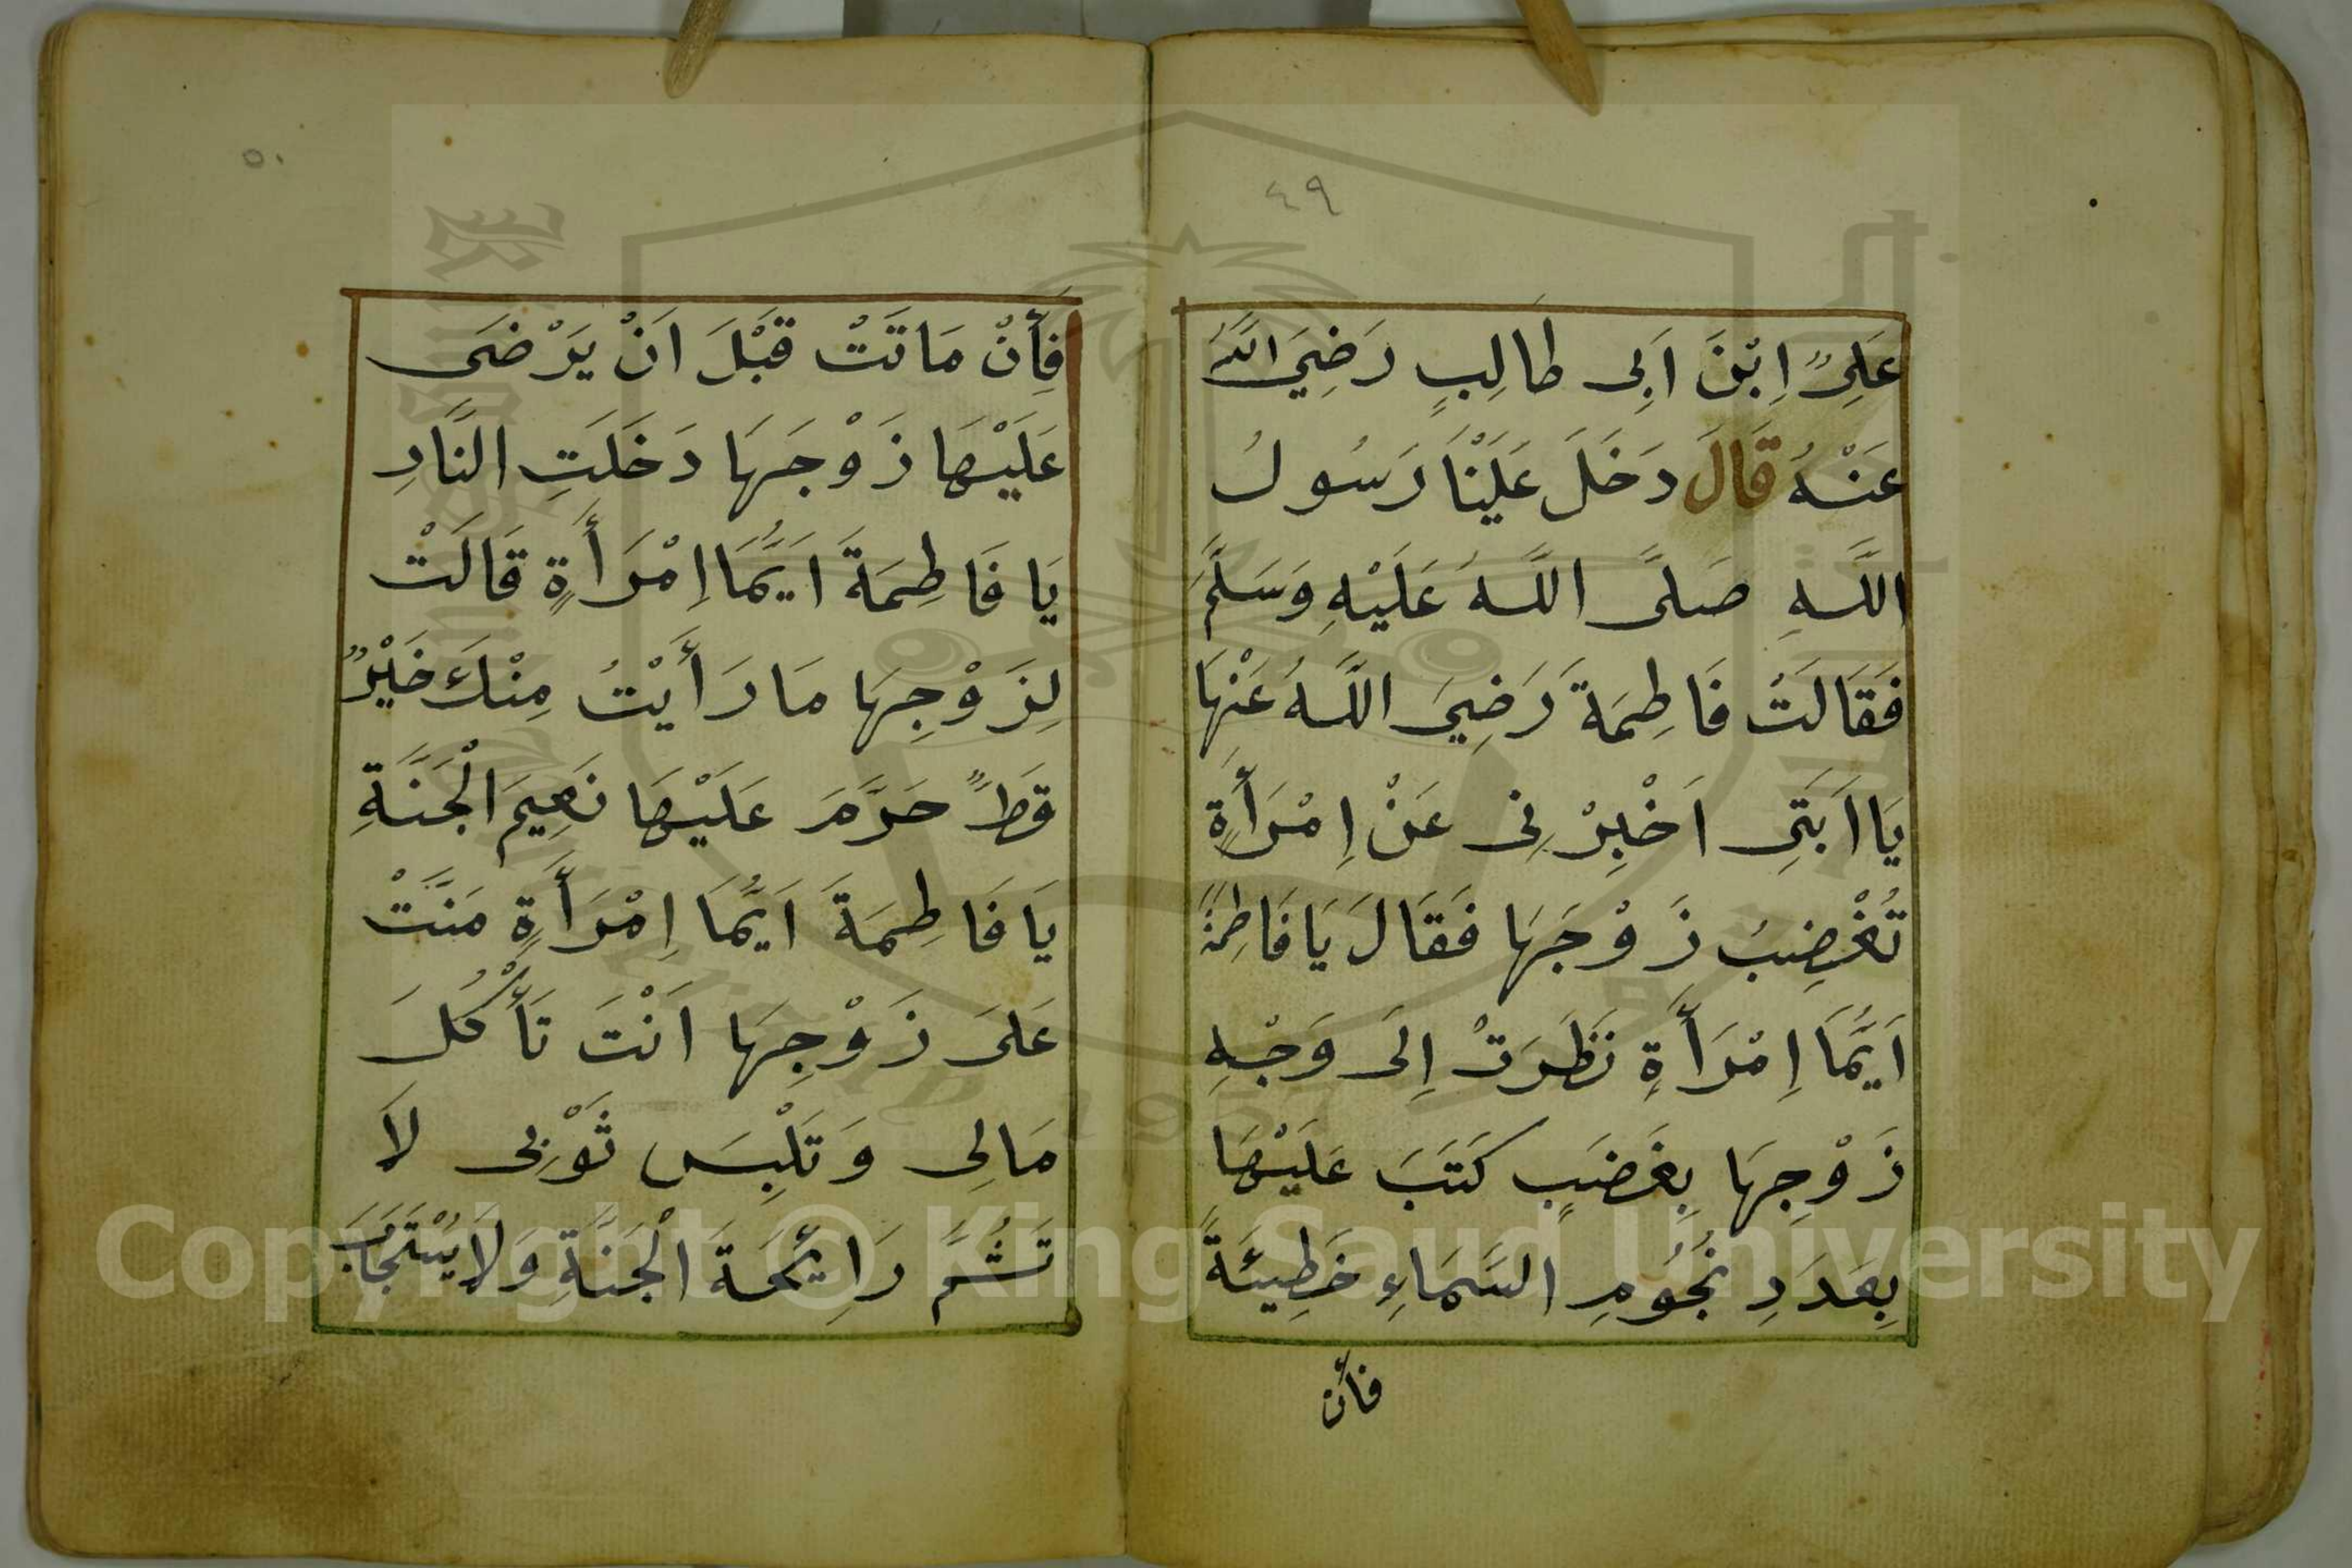 ٤٩
عَلِىٍّ اِبْنَ اَبِى طَالِبٍ رَضِيَ اللَّهُ
عَنْهُ قَالَ دَخَلَ عَلَيْنَا رَسُولُ
اللَّهِ صَلَّى اللَّهُ عَلَيْهِ وَسَلَّمَ
فَقَالَتُ فَاطِمَةَ رَضِيَ اللَّهُ عَنْهَا
يَا اَبَتِى اَخْبِرْنِى عَنْ اِمْرَأَةٍ
تُغْضِبُ زَوْجَهَا فَقَالَ يَا فَاطِمَةً
اَيُّمَا اِمْرَأَةٍ نَظَرَتْ اِلَى وَجْهِ
زَوْجِهَا بِغَضَبٍ كَتَبَ عَلَيْهَا
بِعَدَدِ نُجُومِ السَّمَاءِ خَطِيئَةً
فأن
٥٠
فَأِنْ مَاتَتْ قَبْلَ اَنْ يَرْضَى
عَلَيْهَا زَوْجَهَا دَخَلَتِ النَّارِ
يَا فَاطِمَةَ اَيُّمَا اِمْرَأَةٍ قَالَتْ
لِزَوْجِهَا مَا رَأَيْتُ مِنْكَ خَيْرٌ
قَطً حَرَّمَ عَلَيْهَا نَعِيمَ الْجَنَّةِ
يَا فَاطِمَةَ اَيُّمَا اِمْرَأَةٍ مَنَّتْ
عَلَى زَوْجِهَا اَنْتَ تَأْكُلَ
مَالِى وَتَلْبِسَ ثَوْبِى لَا
تَشُمَّ رَائِحَةَ الْجَنَّةِ وَلَا يُسْتَجَابَ
Copyright © King Saud University
1957